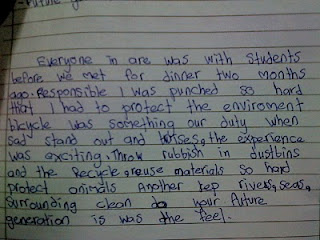 Future g
Everyone in are was with students
before we met for dinner two months
ago. Responsible I was punched so hard
that I had to protect the enviroment
bicycle was something our duty when
sad stand out and the experience
was exciting. Throw rubbish in dustbins
and the Recycle, reuse materials so hard
protect animals Another kep rivers, seas,
surrounding clean to your future
generation is was the feel.